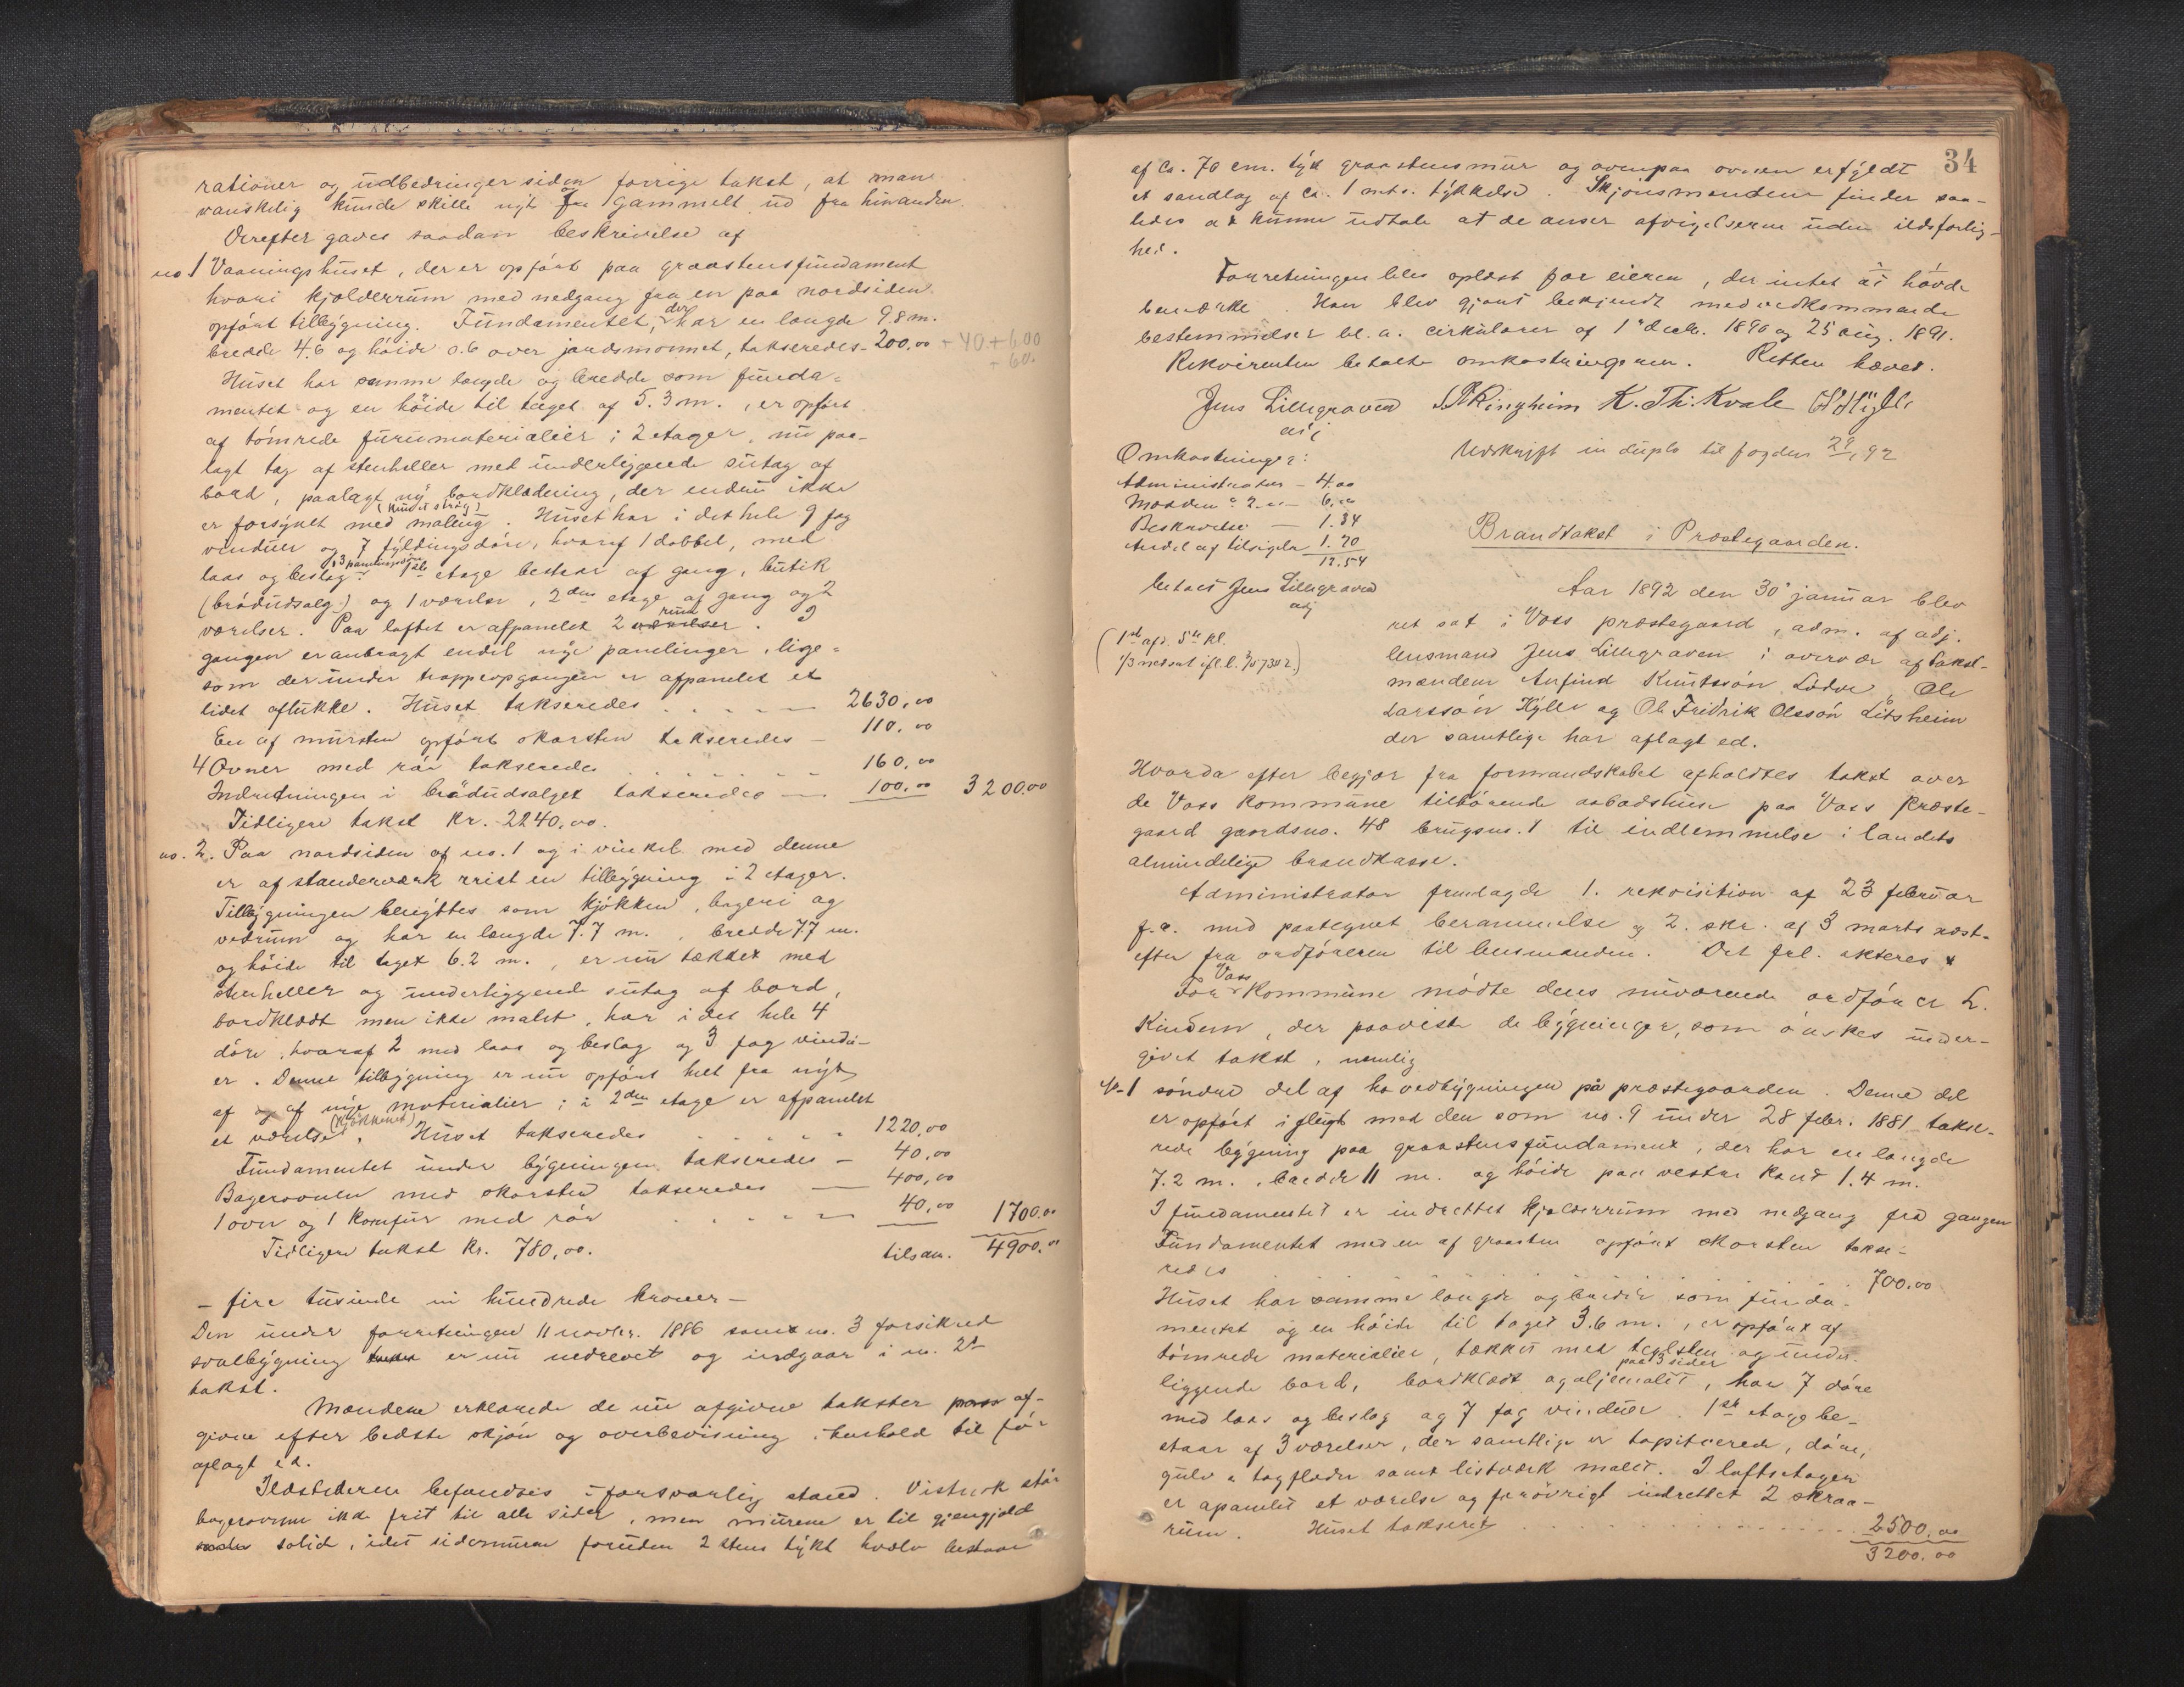 rationer og udbedringer siden forrige takst, at man
vanskelig kunde skille nyt fra gammelt ud fra hinanden.
Derefter gaves saadan beskrivelse af
no 1 Vaaningshuset, der er opført paa graastensfundament
hvori kjælderrum med nedgang fra en paa nordsiden
opført tilbygning. Fundamentet, der har en længde 9.8 m.
bredde 4.6 og høide 0.6 over jordsmonnet, takseredes - 200,00 + 40 + 600
Huset har samme længde og bredde som funda-
mentet og en høide til taget af 5.3 m., er opført
af tømrede furumaterialier i 2 etager, nu paa-
lagt tag af stenheller med underliggende sutag af
bord, paalagt ny bordklædning, der endnu ikke
er forsynet med maling (kun et strøg). Huset har i det hele 9 fag
vinduer og 7 fyldingsdøre, hvoraf 1 dobbel, med
laas og beslag. 1ste etage bestaar af gang, butik
(brødudsalg) og 1 værelse, 2den etage af gang og 2
værelser. Paa loftet er afpanelet 2 værelser rum. I
gangen er anbragt endel nye panelinger, lige-
som der under trappeopgangen er afpanelet et
lidet aflukke. Huset takseredes . . . 2630,00
En af mursten opført skorsten takseredes - 110,00
4 Ovner med rør takseredes . . . 160,00
Indretningen i brødudsalget takseredes - 100,00 3200.00
Tidligere takst kr. 2240,00.
no. 2. Paa nordsiden af no. 1 og i vinkel med denne
er af standerværk reist en tilbygning i 2 etager.
Tilbygningen benyttes som kjøkken, bageri og
vedrum og har en længde 7.7 m., bredde 7.7 m.
og høide til taget 6.2 m., er nu tækket med
stenheller og underliggende sutag af bord,
bordklædt men ikke malet, har i det hele 4
døre, hvoraf 2 med laas og beslag og 3 fag vindu-
er. Denne tilbygning er nu opført helt fra nyt
af og af nye materialier; i 2den etage er afpanelet
et værelse (kjøkkenet). Huset takseredes . . . 1220,00
Fundamentet under bygningen takseredes - 40,00
Bagerovnen med skorsten takseredes - 400,00
1 ovn og 1 komfur med rør . . . 40,00 1700.00
Tidligere takst kr. 780,00. tilsam. 4900.00
- fire tusinde ni hundrede kroner -
Den under forretningen 11 novbr. 1886 som no. 3 forsikred
svalbygning er nu nedrevet og indgaar i no. 2s
takst.
Mændene erklærede de nu afgivne takster af-
givne efter bedste skjøn og overbevisning i henhold til før
aflagt ed.
Ildstederne befandtes i forsvarlig stand. Vistnok står
bagerovnen ikke frit til alle sider, men murene er til gjengjæld
solide, idet sidemuren foruden 2 stens tykt hvælv bestaar
34
af ca. 70 cm. tyk graastensmur og ovenpaa ovnen er fyldt
et sandlag af ca. 1 mtrs. tykkelse. Skjønsmændene finder saa-
ledes at kunne udtale at de anser afvigelserne uden ildsfarlig-
hed.
Forretningen blev oplæst for eieren, der intet at havde
bemærke. Han blev gjort bekjendt med vedkommende
bestemmelser bl. a. cirkulærer af 1 decbr. 1890 og 25 aug. 1891.
Rekvirenten betalte omkostningerne. Retten hævet.
Jens Lillegraven N Ringheim K. Th. Kvale
adj
Omkostninger: Udskrift in duplo til fogden
Administrator - 4.00
Mændene à 2.00 - 6.00
Beskrivelse - 1.34
Andel af tilsigelse 1.20
12.54
betalt Jens Lillegraven
adj
(1ste afd. 5te kl.
Brandtakst i Præstegaarden.
Aar 1892 den 30 januar blev
ret sat i Voss præstegaard, adm. af adj.
lensmand Jens Lillegraven i overvær af takst-
mændene Anfind Knutssøn Lødve, Ole
Larssøn Hylle og Ole Fredrik Olssøn Litsheim
der samtlige har aflagt ed.
Hvorda efter begjær fra formandskabet afholdtes takst over
de Voss kommune tilhørende aabodshuse paa Voss Præste-
gaard gaardsno. 48 brugsno. 1 til indlemmelse i landets
almindelige brandkasse.
Administrator fremlagde 1. rekvisition af 23 februar
f. a. med paategnet berammelse og 2. skr. af 3 marts næst-
efter fra ordføreren til lensmanden. Det frl. akteres
For Voss kommune mødte dens nuværende ordfører L.
Kindem, der paaviste de bygninger, som ønskes under-
givet takst, nemlig
No. 1 søndre del af hovedbygningen på præstegaarden. Denne del
er opført i flugt med den som no. 9 under 28 febr. 1881 takse-
rede bygning paa graastensfundament, der har en længde
7.2 m., bredde 11 m. og høide paa vestre kant 1.4 m.
I fundamentet er indrettet kjælderrum med nedgang fra gangen
Fundamentet med en af graasten opført skorsten takse-
redes . . . 700.00
Huset har samme længde og bredde som funda-
mentet og en høide til taget 3.6 m., er opført af
tømrede materialier, tækket med teglsten og under-
liggende bord, bordklædt paa 3 sider og oljemalet, har 7 døre
med laas og beslag og 7 fag vinduer. 1ste etage be-
staar af 3 værelser, der samtlige er tapitserede, døre,
gulv & tagflader samt listværk malet. I loftsetagen
er apanelet et værelse og forøvrigt indrettet 2 skraa-
rum. Huset takseret . . . 2500,00
3200.00